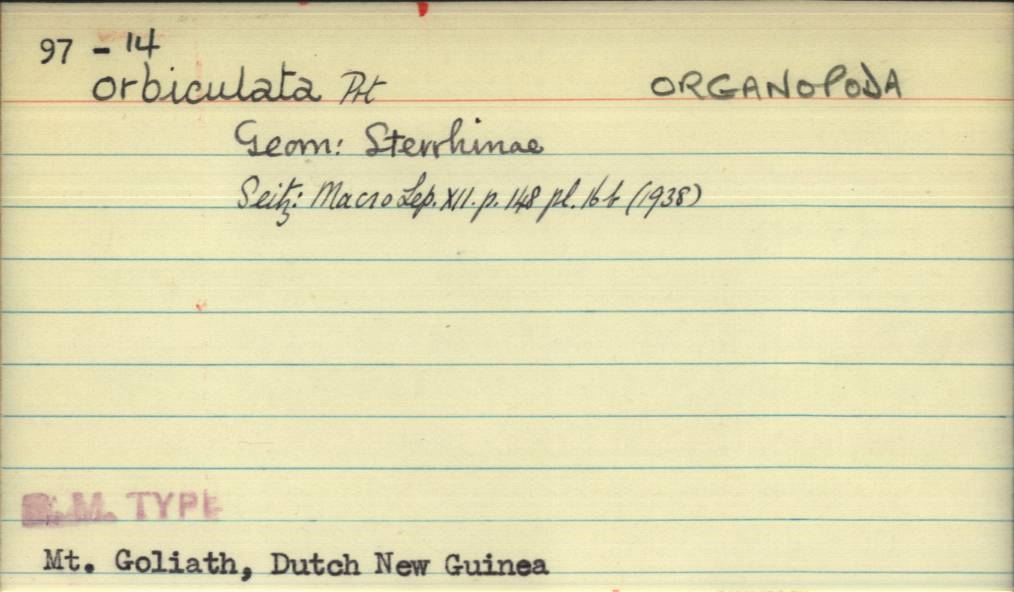 97 - 14
orbiculata Prt ORGANOPODA
Geom: Sterrhinae
Seitz: Macro Lep. XII. p. 148 pl. 16 b (1938)
M. TYPE
Mt. Goliath, Dutch New Guinea